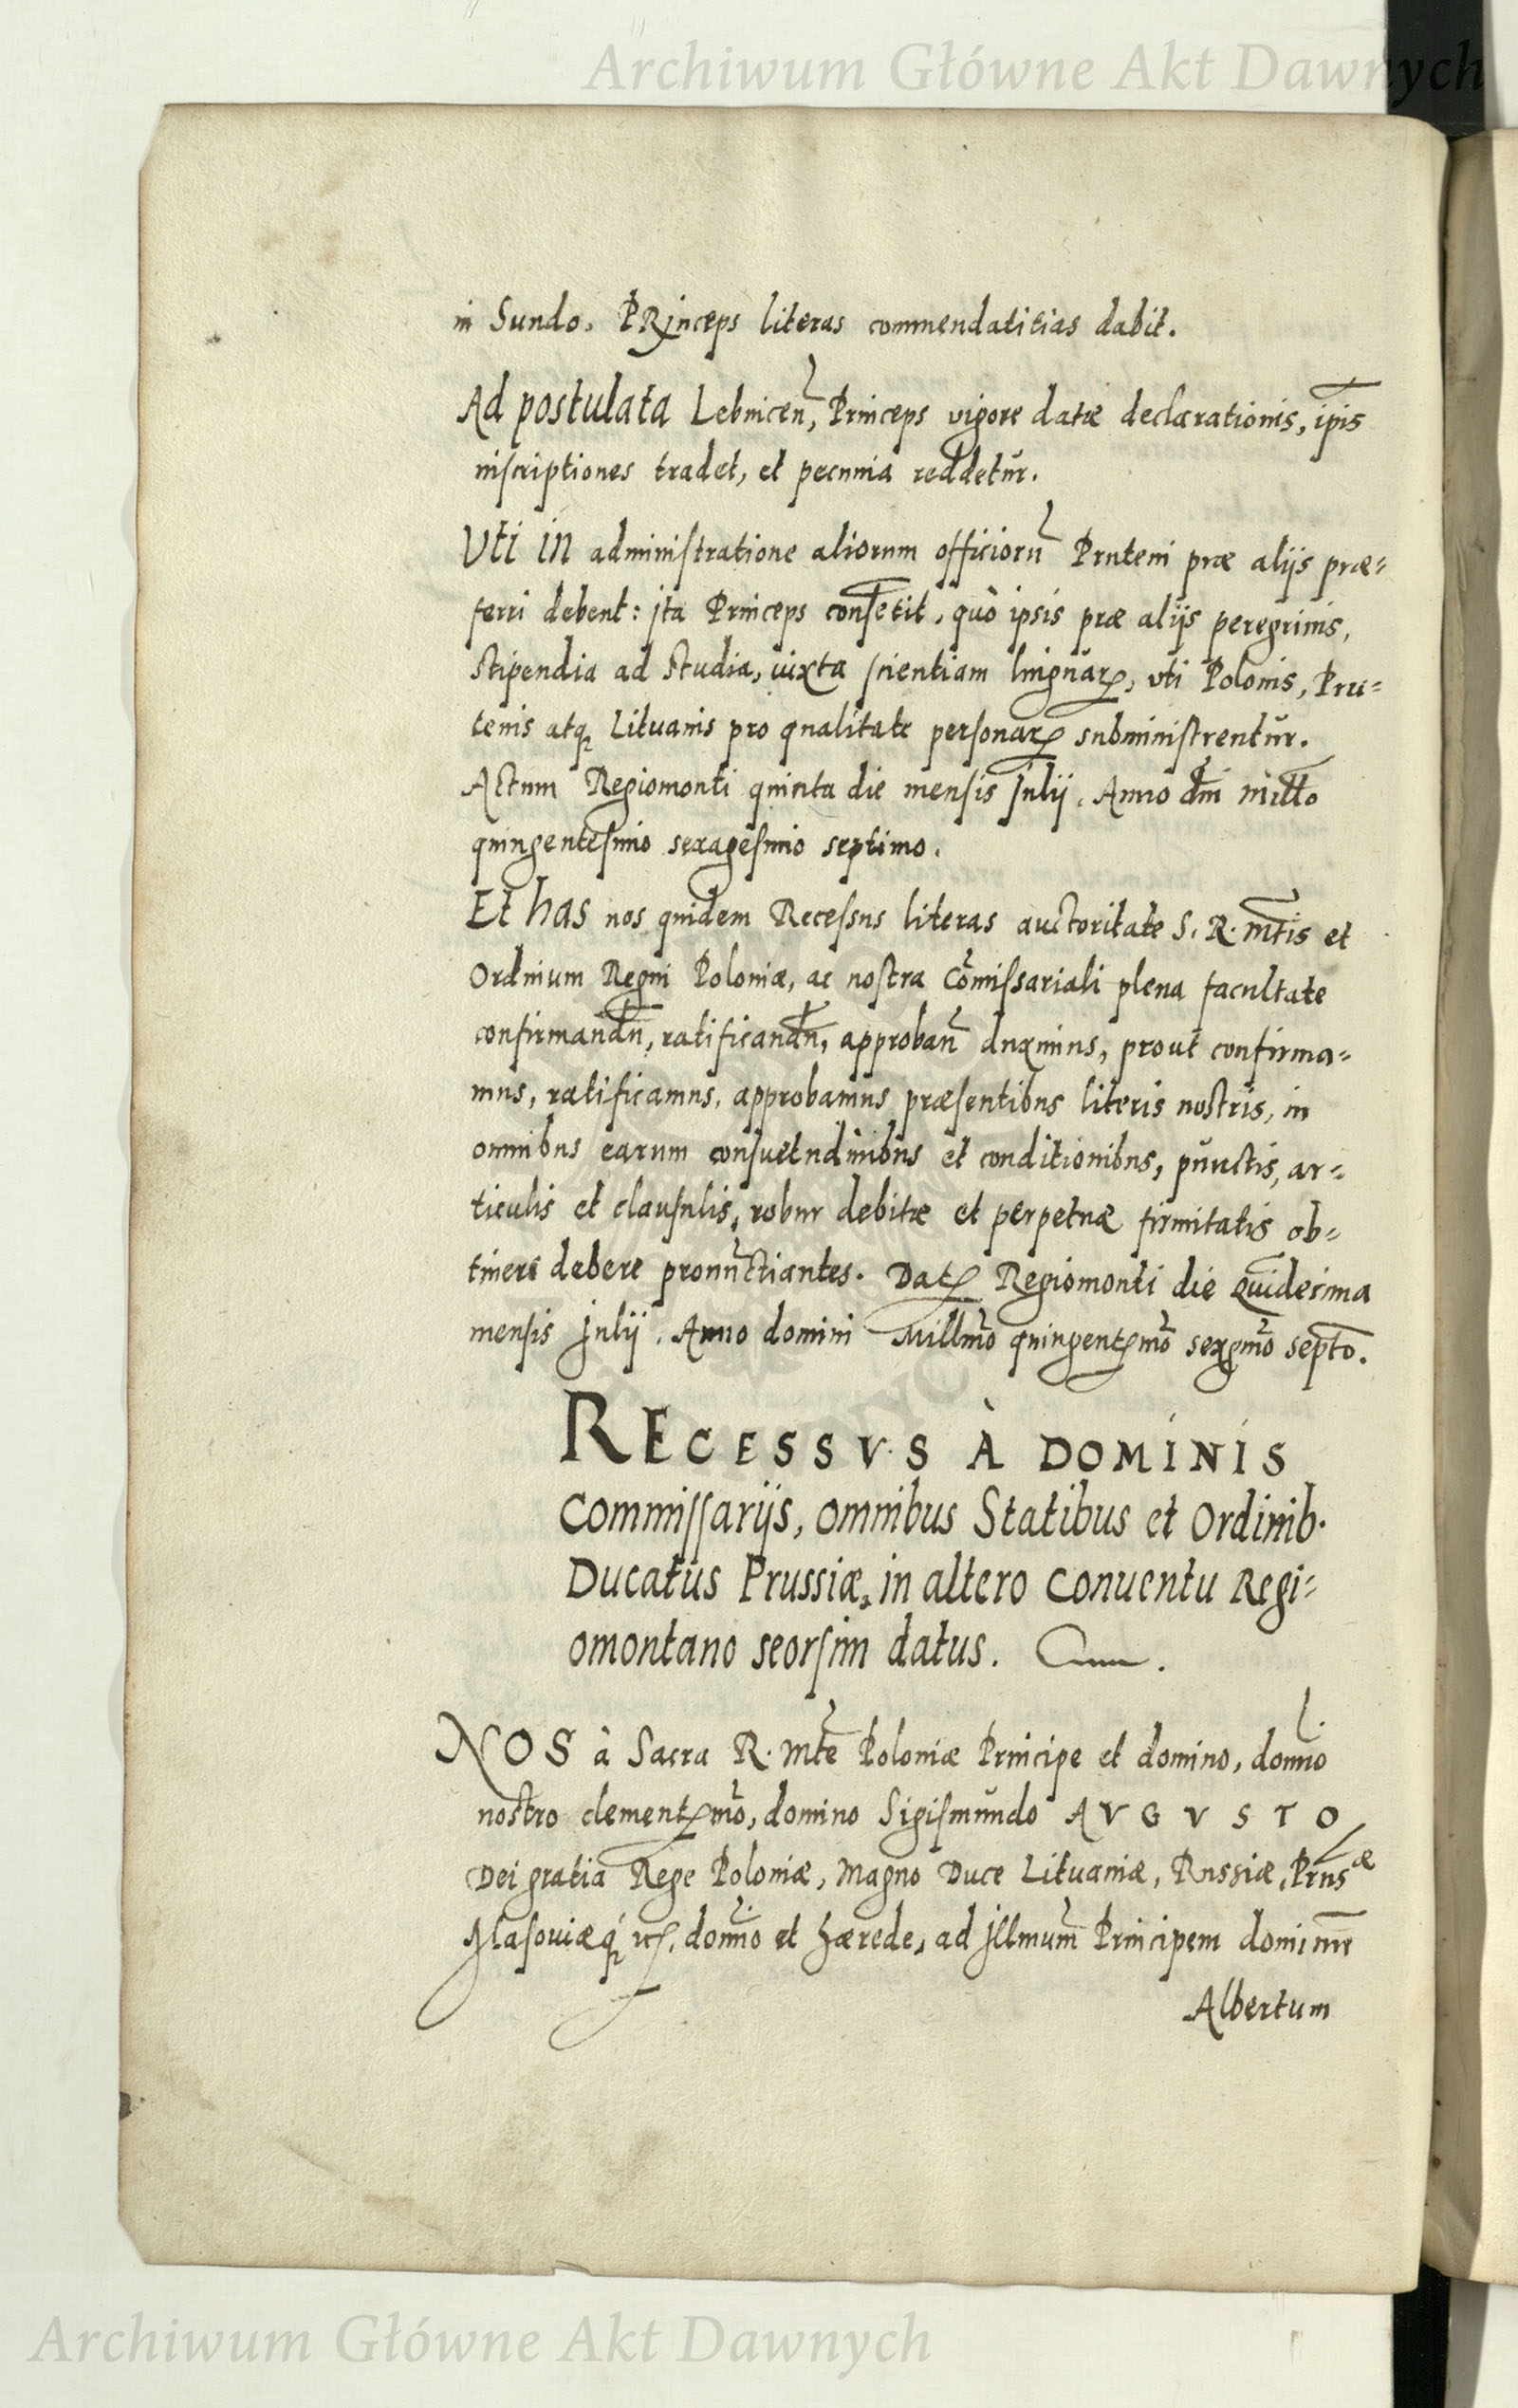 Archiwum Główne Akt Dawnych
in Sundo. PRinceps literas commendatitias dabit.
Ad postulata Lebnicen, Princeps vigore datæ declarationis, ipis
inscriptiones tradet, et pecunia reddetur.
Vti in administratione aliorum officioru Pruteni præ alijs præ-
ferri debent: jta Princeps consetit, quò ipsis præ alijs peregrinis,
stipendia ad studia, iuxta scientiam linguarꝝ, vti Polonis, Pru-
tenis atqꝫ Lituanis pro qualitate personarꝝ subministrentur.
Actum Regiomonti quinta die mensis Julij. Anno dni millo
quingentesimo sexagesimo septimo.
Et has nos quidem Recessus literas auctoritate S. R. Mtis et
Ordinum Regni Poloniæ, ac nostra Comissariali plena facultate
confirmandn, ratificandn, approban duximus, prout confirma-
mus, ratificamus, approbamus præsentibus literis nostris, in
omnibus earum consuetudinibus et conditionibus, punctis, ar-
ticulis et clausulis, robur debitæ et perpetuæ firmitatis ob-
tinere debere pronuctiantes. Datꝝ Regiomonti die Quidecima
mensis Julij. Anno domini Millmo quingentꝝmo sexgmo septo.
RECESSVS À DOMINIS
Commissarijs, omnibus Statibus et Ordinib.
Ducatus Prussiæ, in altero Conuentu Regi-
omontano seorsim datus.
NOS à Sacra R. Mte Poloniæ Principe et domino, domno
nostro clementꝝmo, domino Sigismundo AVGVSTO
Dei gratia Rege Poloniæ, Magno Duce Lituaniæ, Russiæ, Prusæ
Masouiæqꝫ etc. domno et hærede, ad Jllmum Principem dominum
Albertum
Archiwum Główne Akt Dawnych